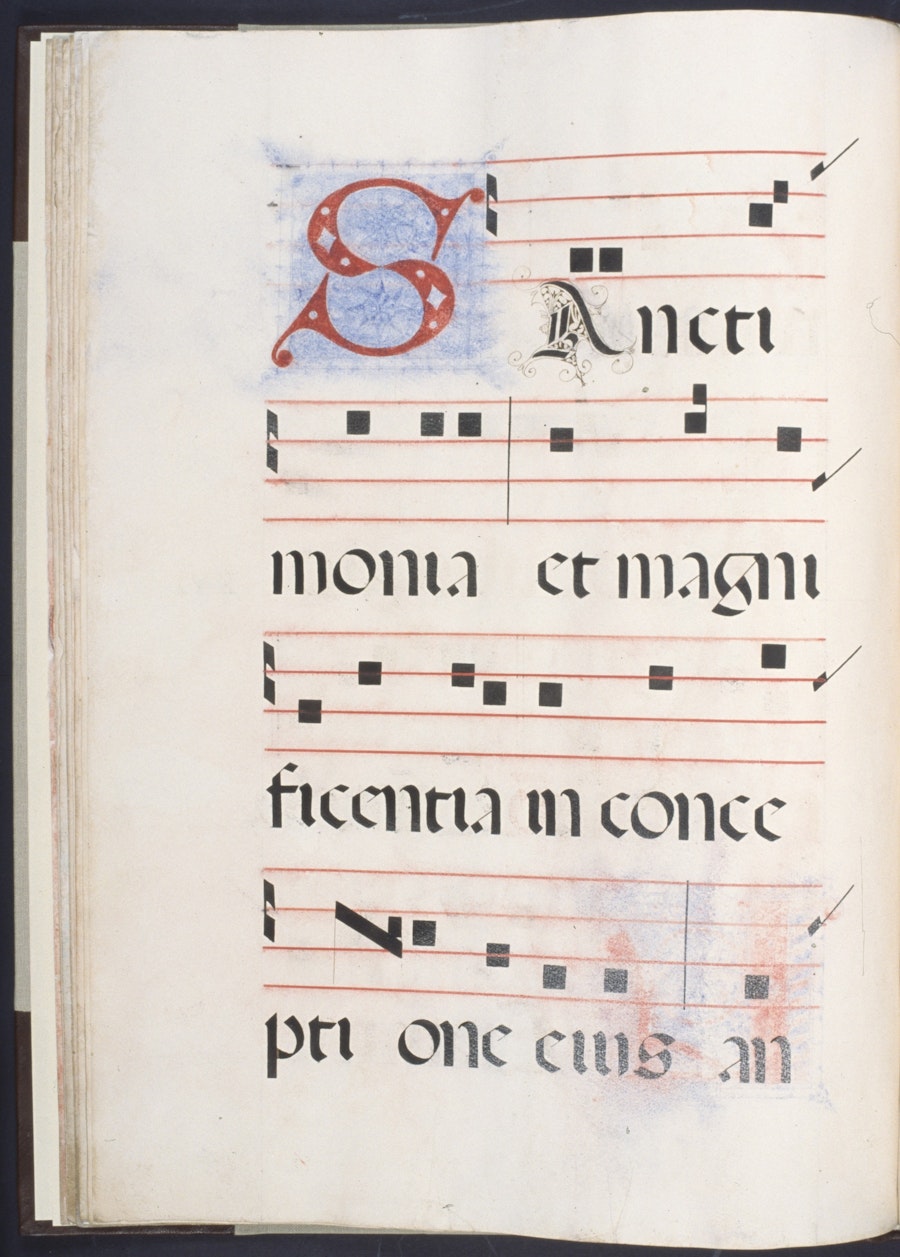 SAncti
monia et magni
ficentia in conce
pti one eius an